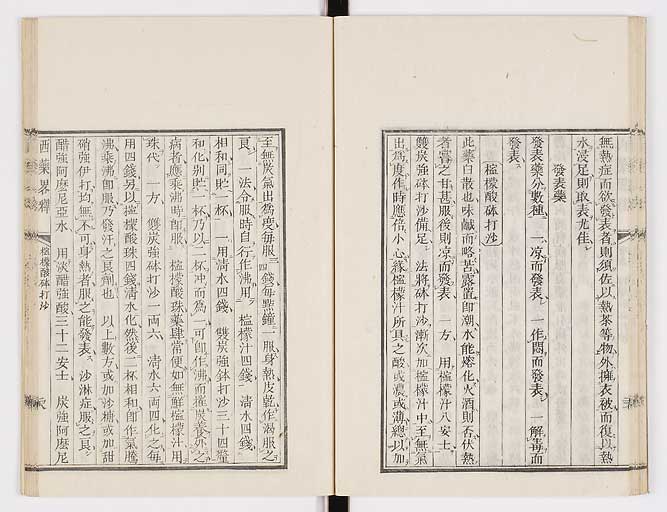 無熱症而欲發表者則須佐以熱茶等物外擁衣被而復以熱
水浸足則取表尤佳
發表藥
發表藥分數種 一凉而發表 一作悶而發表 一解毒而
發表
檸檬酸砵打沙
此藥白散也味鹹而略苦露置即潮水能熔化火酒則否伏熱
者嘗之甘甚服後則凉而發表 一方 用檸檬汁八安士
雙炭強砵打沙備足 法將砵打沙漸次加檸檬汁中至無氣
出為度作時應倍小心緣檸檬汁所具之酸或濃或薄總以加
至無炭氣出為度每服三四錢每點鐘一服身熱皮乾作渴服之
良 一法令服時自行作沸用 檸檬汁四錢 清水四錢
相和同貯一杯 一用清水四錢 雙炭強砵打沙三十四釐
和化別貯一杯乃以二杯冲而為一可即作沸而擢炭養外之
病者應乘沸時即服 檸檬酸珠藥肆常便如無鮮檸檬汁用
珠代 一方 雙炭強砵打沙一両六 清水六両四化之每
用四錢另以檸檬酸珠四錢清水化然後二杯相和即作氣騰
沸乘沸即服乃發汗之良劑也 以上數方或加沙糖或加甜
硝強伊打均無不可身熱者服之能發表 沙淋症服之良
醋強阿摩尼亞水 用淡醋強酸三十二安士 炭強阿摩尼
西藥畧釋
檸檬酸砵打沙